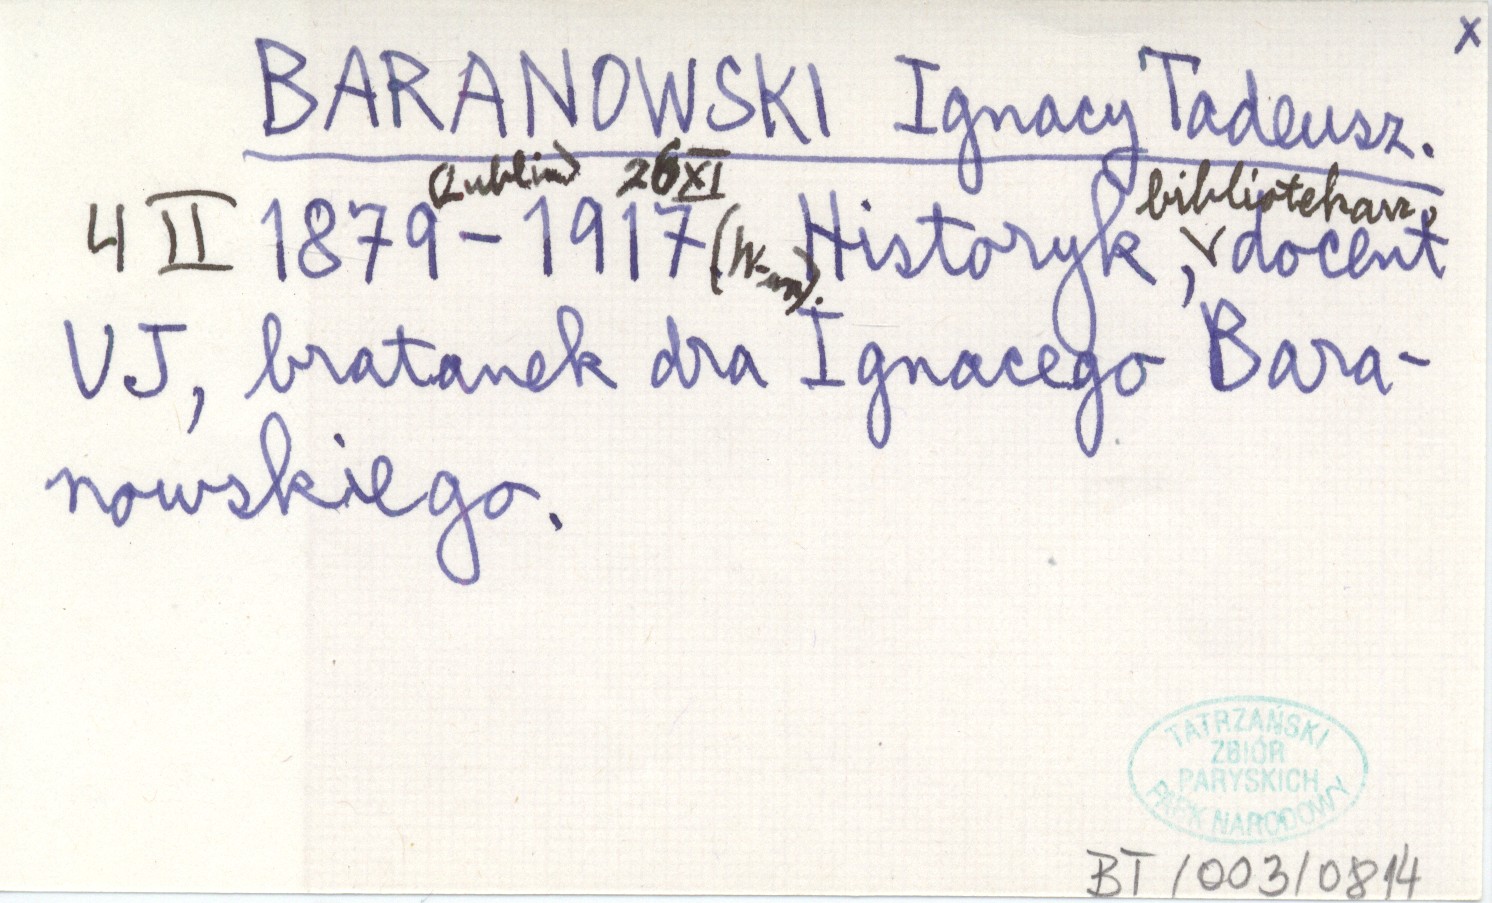 x
BARANOWSKI Ignacy Tadeusz.
(Lublin) 26 XI bibliotekarz,
4 II 1879 – 1917 (W-wa). Historyk, docent
UJ, bratanek dra Ignacego Bara-
nowskiego.
TATRZAŃSKI
ZBIÓR
PARYSKICH
PARK NARODOWY
BT/003/0814